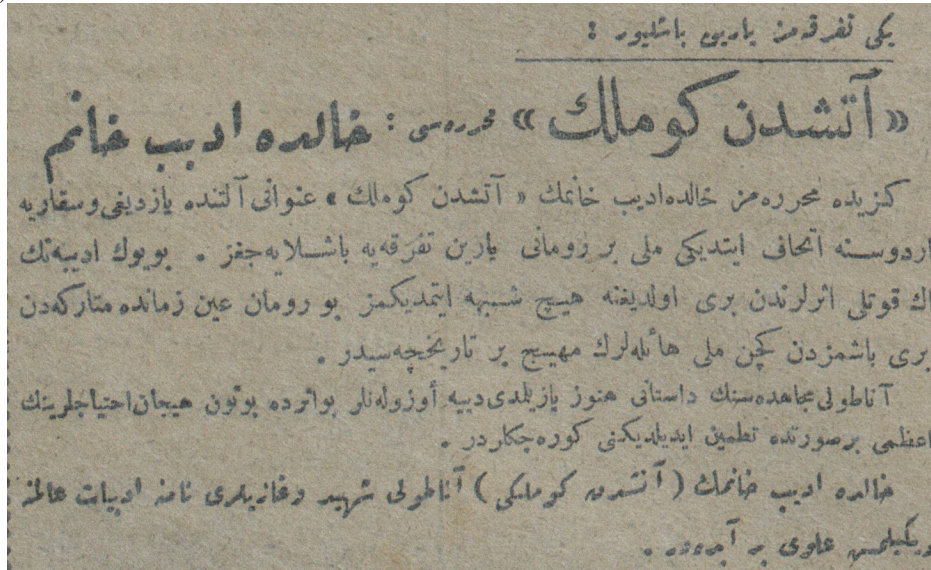 یکی تفرقه‌مز یارین باشلیور :
«آتشدن کوملك» محرره‌سی : خالده ادیب خانم
کزیده محرره‌مز خالده ادیب خانمك « آتشدن کوملك » عنوانی آلتنده یازدیغی و سقاریه
اردوسنه اتحاف ایتدیکی ملی بر رومانی یارین تفرقه‌یه باشلایه‌جغز . بویوك ادیبه‌نك
اك قوتلی اثرلرندن بری اولدیغنه هیچ شبهه ایتمدیکمز بو رومان عین زمانده متارکه‌دن
بری باشمزدن کچن ملی هائله‌لرك مهیج بر تاریخچه‌سیدر .
آناطولی مجاهده‌سنك داستانی هنوز یازیلمدی دییه اوزوله‌نلر بو اثرده بوتون هیجان احتیاجلرینك
اعظمی بر صورتده تطمین ایدیلدیکنی کوره‌جکلردر .
خالده ادیب خانمك ( آتشدن کوملکی ) آناطولی شهید و غازیلری نامنه ادبیات عالمنه
دیکیلمش علوی بر آبده‌در .